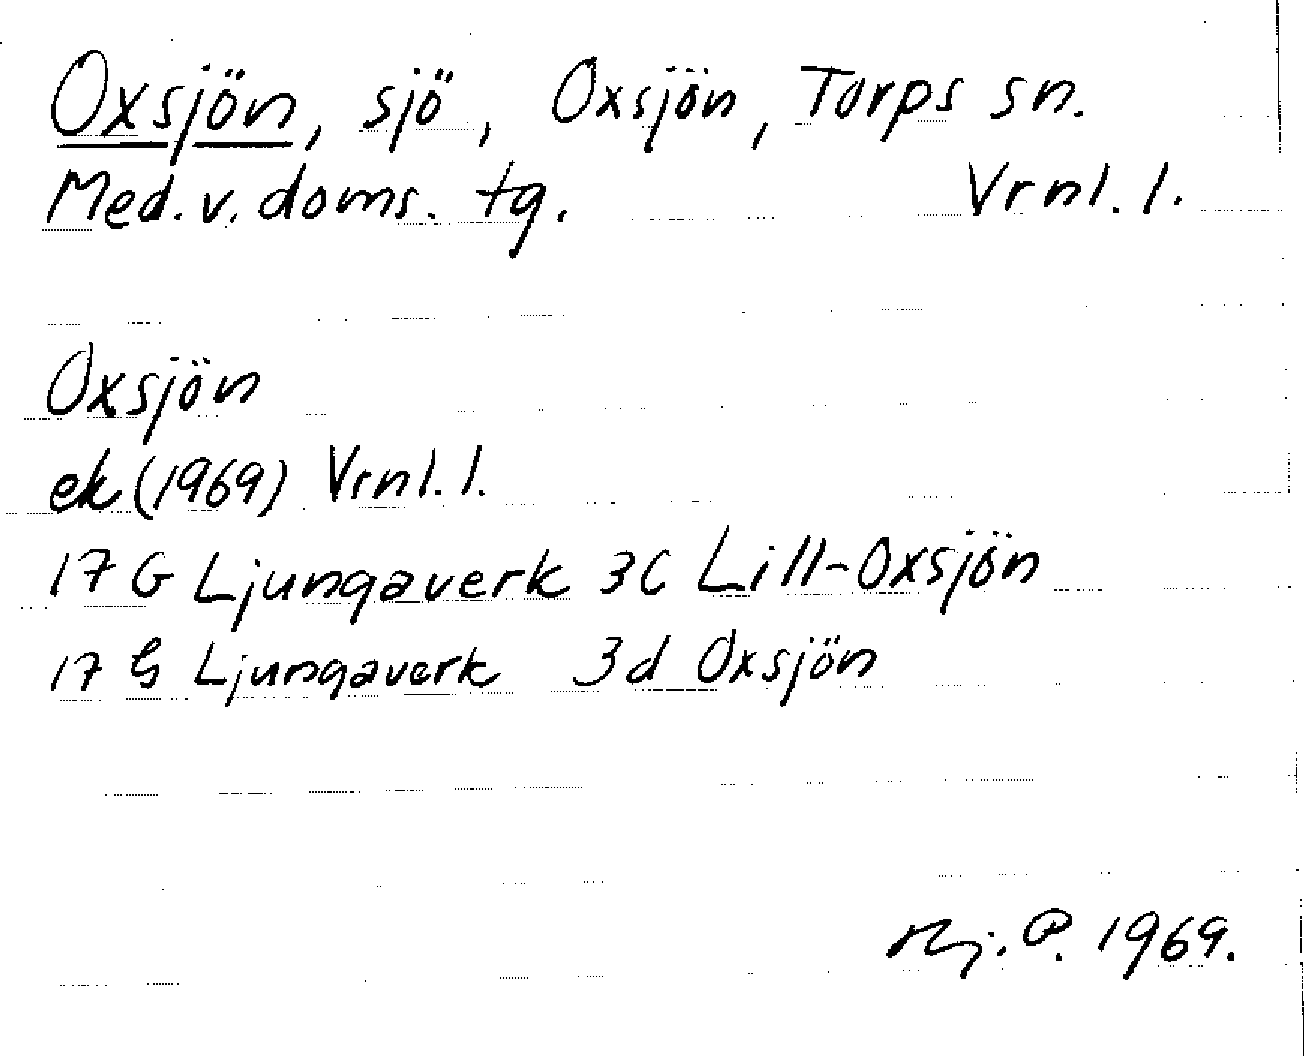 Oxsjön, sjö, Oxsjön, Torps sn.
Med. v. doms. tg. Vrnl. l.
Oxsjön
ek (1969) Vrnl. l.
17 G Ljungaverk 3c Lill-Oxsjön
17 G Ljungaverk 3d Oxsjön
P. 1969.